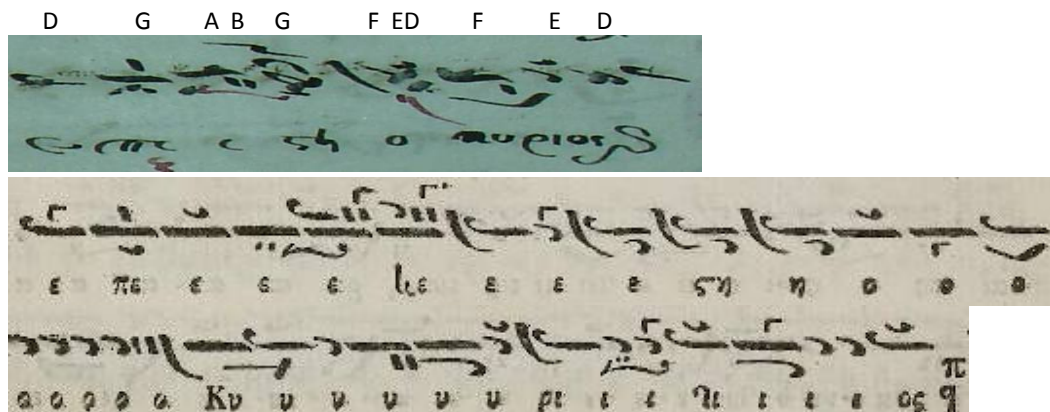 D G A B G F ED F E D
ε πε ε ςη ο κυριος
ε πε ε ε ε ε ε ε ςη η ο ο ο
ο ο ο ο ο Κυ υ υ υ υ υ ρι ι ι ι ι ι ος π